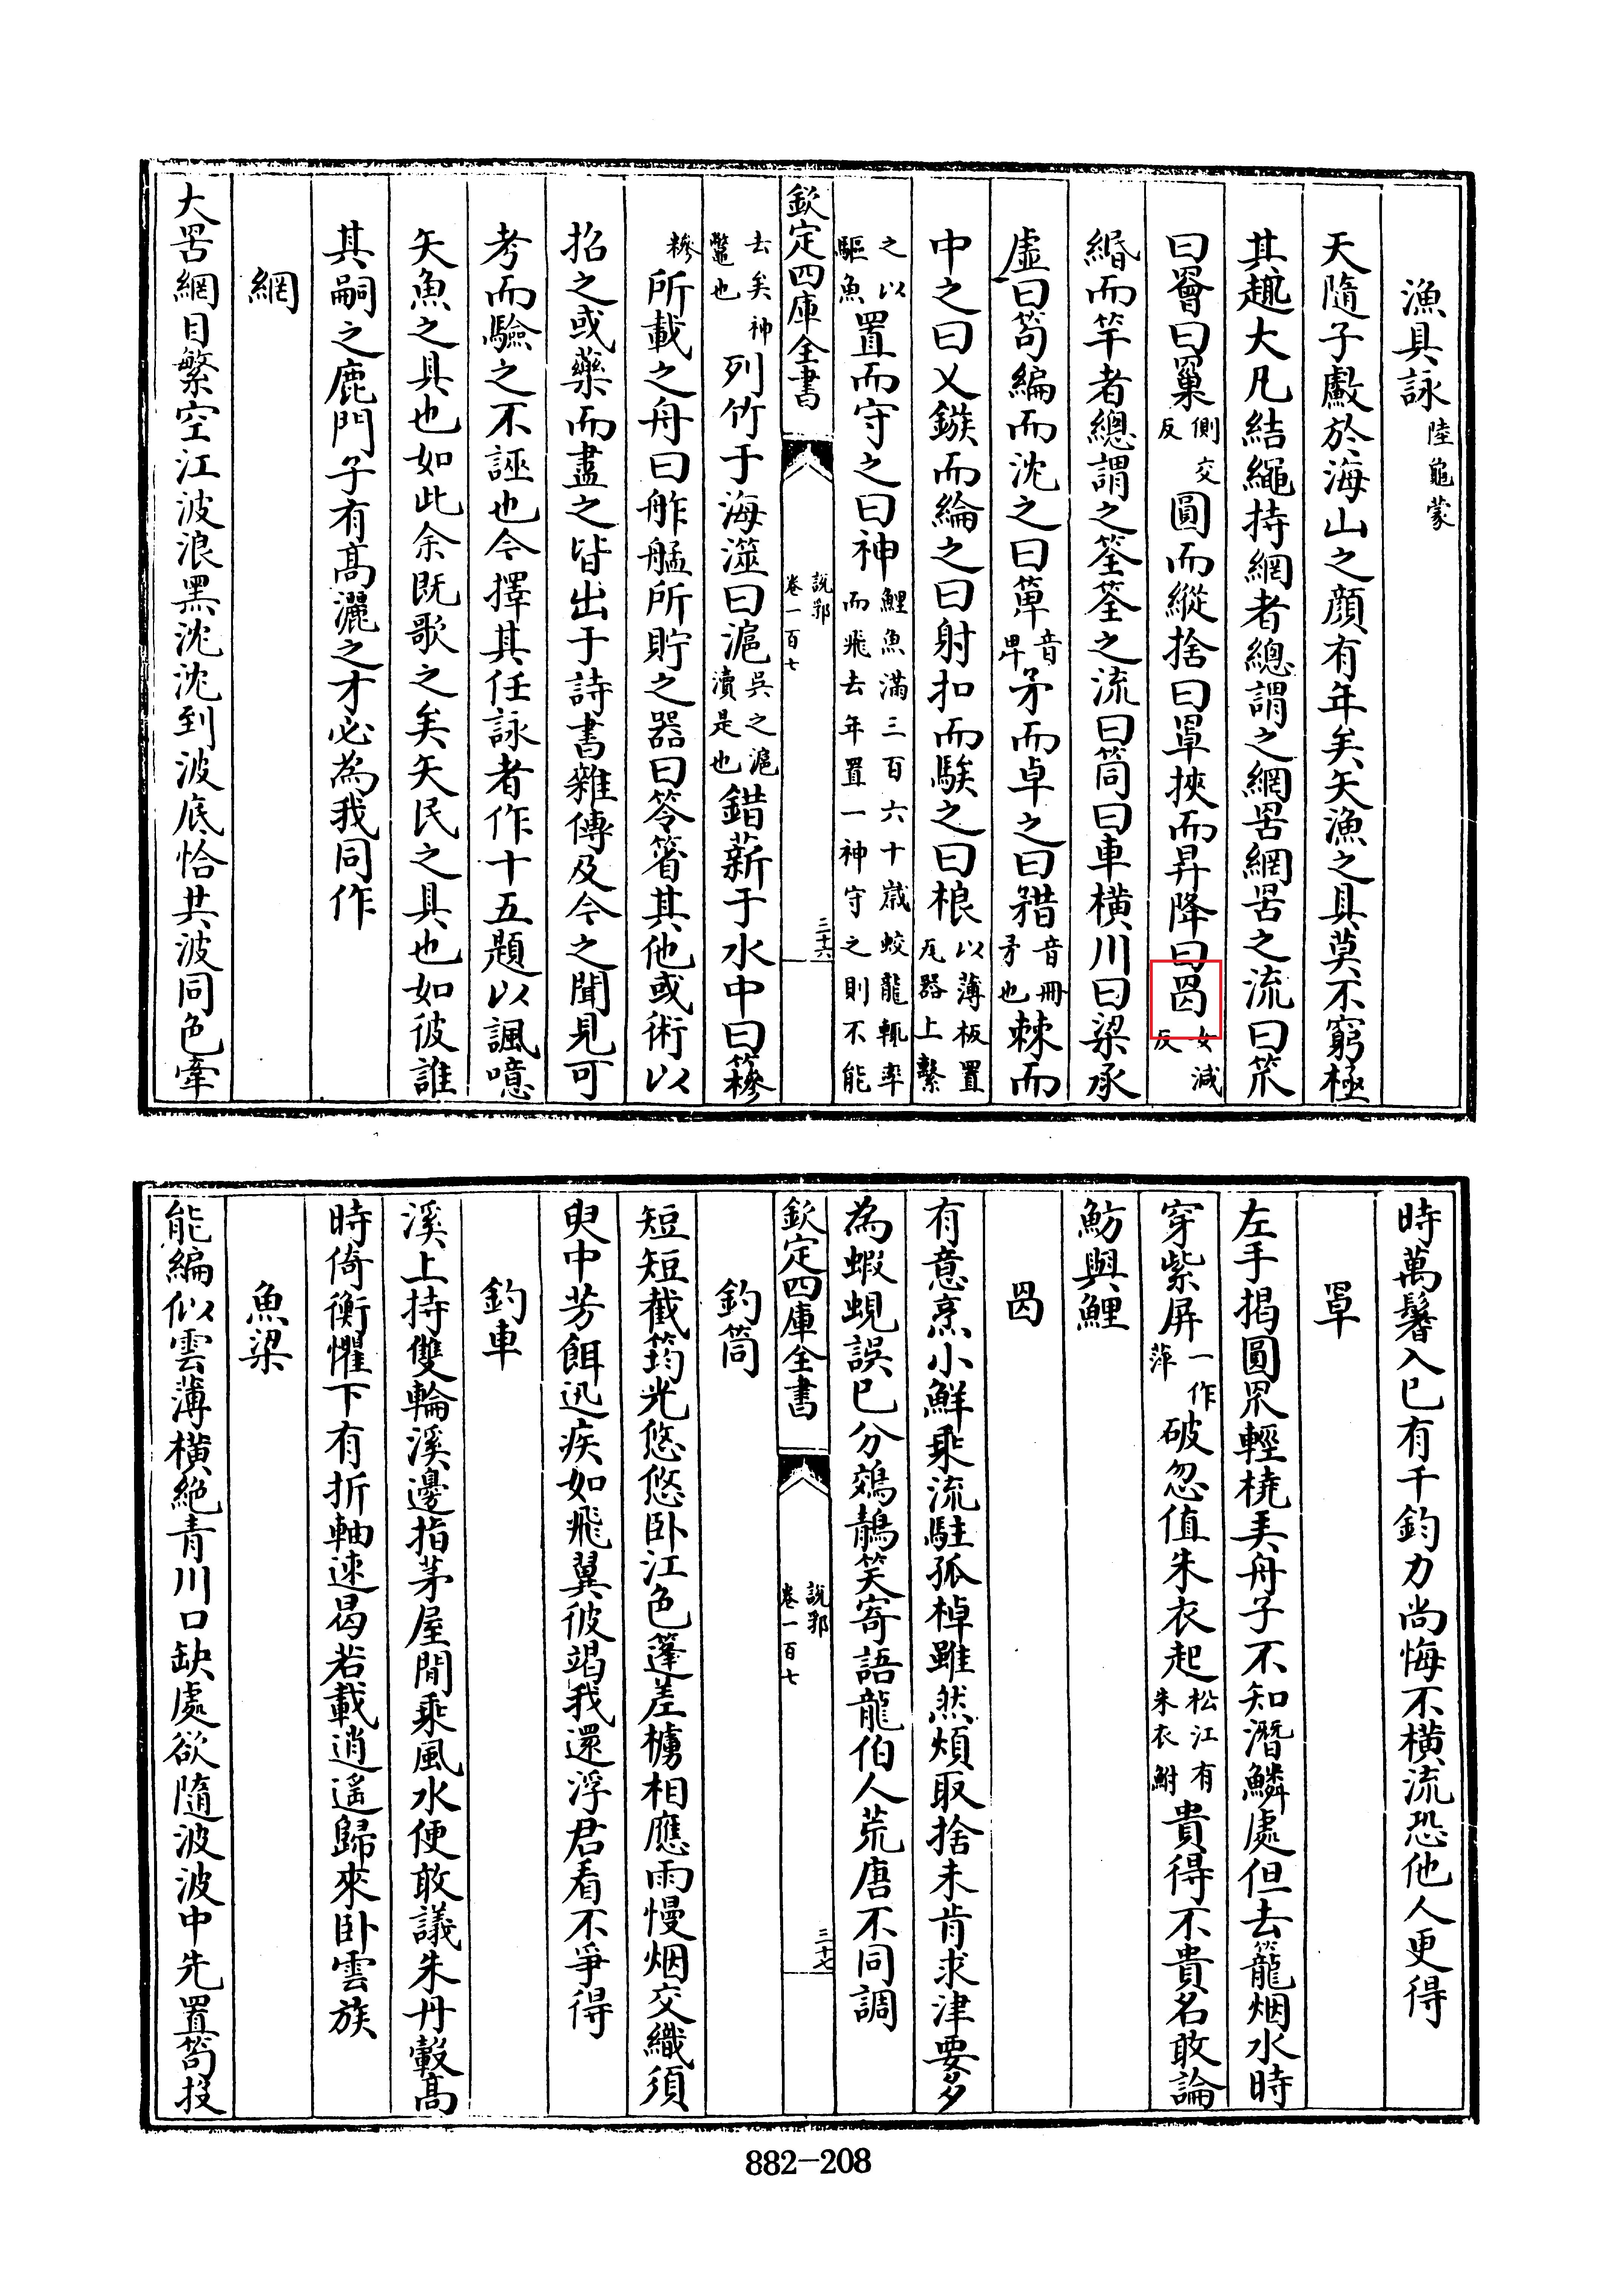 漁具詠陸龜蒙
天隨子歔於海山之顏有年矣矢漁之具莫不窮極
其趣大凡結繩持網者總謂之網罟網罟之流曰罛
曰罾曰罺側交反圓而縱捨曰罩挾而昇降曰女減反
緡而竿者總謂之筌筌之流曰筒曰車橫川曰梁承
虛曰笱編而沈之曰箄音卑矛而卓之曰矠音冊矛也棘而
中之曰乂鏃而綸之曰射扣而駭之曰桹以薄板置瓦器上擊
之以驅魚置而守之曰神鯉魚滿三百六十歲蛟龍輒率而飛去年置一神守之則不能
欽定四庫全書
說郛
卷一百七
三十六
去矣神鼈也列竹于海澨曰滬吳之滬瀆是也錯薪于水中曰䅟
糝所載之舟曰舴艋所貯之器曰笭箵其他或術以
招之或藥而盡之皆出于詩書雜傳及今之聞見可
考而驗之不誣也今擇其任詠者作十五題以諷噫
矢魚之具也如此余既歌之矣矢民之具也如彼誰
其嗣之鹿門子有高灑之才必為我同作
網
大罟網目繁空江波浪黑沈沈到波底恰共波同色牽
時萬鬐入已有千鈞力尚悔不橫流恐他人更得
罩
左手揭圓罛輕橈弄舟子不知潛鱗處但去籠烟水時
穿紫屏一作萍破忽值朱衣起松江有朱衣鮒貴得不貴名敢論
魴與鯉
有意烹小鮮乘流駐孤棹雖然煩取捨未肯求津要多
為蝦蜆誤已分鵁鶄笑寄語龍伯人荒唐不同調
欽定四庫全書
說郛
卷一百七
三十七
釣筒
短短截筠光悠悠卧江色蓬差櫓相應雨慢烟交織須
臾中芳餌迅疾如飛翼彼竭我還浮君看不爭得
釣車
溪上持雙輪溪邊指茅屋閒乘風水便敢議朱丹轂高
時倚衡懼下有折軸速曷若載逍遙歸來卧雲族
魚梁
能編似雲薄橫絕青川口缺處欲隨波波中先置笱投
882-208